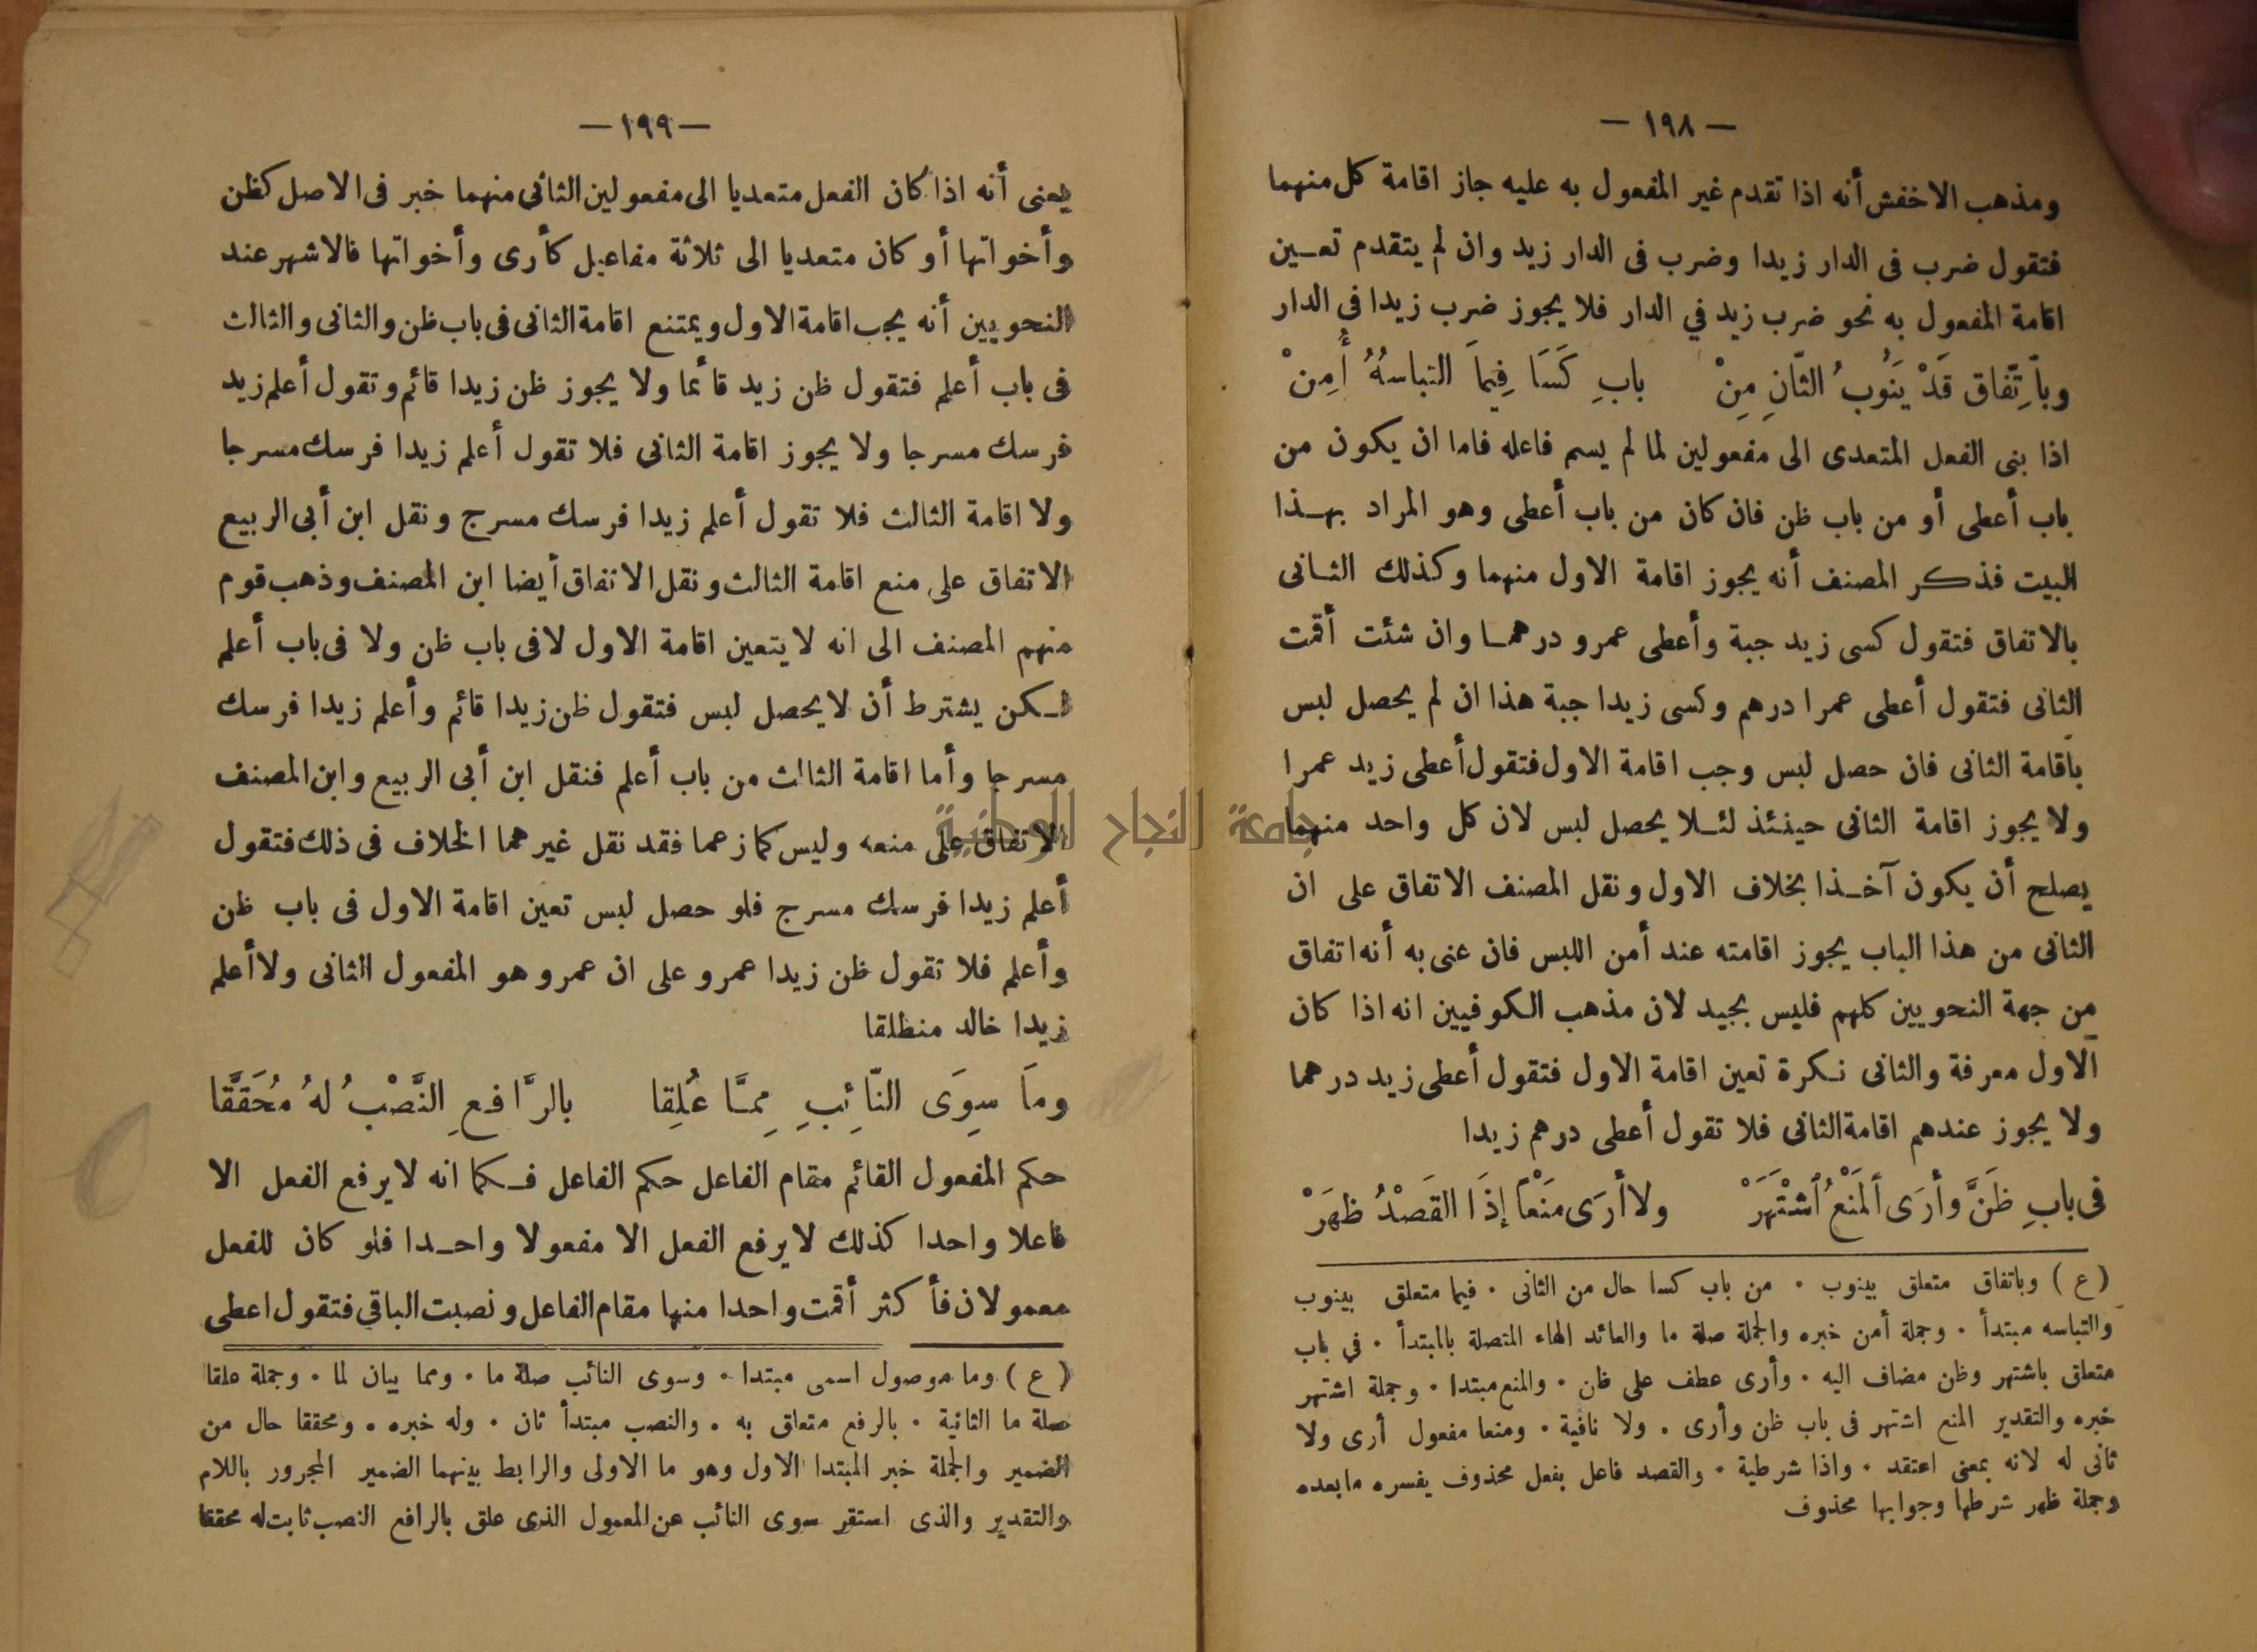 — ١٩٨ —
ومذهب الاخفش أنه اذا تقدم غير المفعول به عليه جاز اقامة كل منهما
فتقول ضرب فى الدار زيدا وضرب فى الدار زيد وان لم يتقدم تعـين
اقامة المفعول به نحو ضرب زيد في الدار فلا يجوز ضرب زيدا في الدار
وبِاَتِّفاق قَدْ يَنُوبُ الثَّانِ مِنْ بابِ كَسَا فِيمَا التباسُهُ أُمِنْ
اذا بنى الفعل المتعدى الى مفعولين لما لم يسم فاعله فاما ان يكون من
باب أعطى أو من باب ظن فان كان من باب أعطى وهو المراد بهـذا
البيت فذكر المصنف أنه يجوز اقامة الاول منهما وكذلك الثـانى
بالاتفاق فتقول كسى زيد جبة وأعطى عمرو درهمـا وان شئت أقمت
الثانى فتقول أعطى عمرا درهم وكسى زيدا جبة هذا ان لم يحصل لبس
باقامة الثانى فان حصل لبس وجب اقامة الاول فتقول أعطى زيد عمرا
ولا يجوز اقامة الثانى حينئذ لئـلا يحصل لبس لان كل واحد منهما
يصلح أن يكون آخـذا بخلاف الاول ونقل المصنف الاتفاق على ان
الثانى من هذا الباب يجوز اقامته عند أمن اللبس فان عنى به أنه اتفاق
من جهة النحويين كلهم فليس بجيد لان مذهب الكوفيين انه اذا كان
الاول معرفة والثانى نـكرة تعين اقامة الاول فتقول أعطى زيد درهما
ولا يجوز عندهم اقامة الثانى فلا تقول أعطى درهم زيدا
فى بابِ ظَنَّ وأرَى ٱلمَنْعُ ٱشْتَهَرْ ولا أرَى مَنْعاً إذَا القَصْدُ ظهَرْ
(ع) وباتفاق متعلق بينوب ٠ من باب كسا حال من الثانى ٠ فيما متعلق بينوب
والتباسه مبتدأ ٠ وجملة أمن خبره والجملة صلة ما والعائد الهاء المتصلة بالمبتدأ ٠ في باب
متعلق باشتهر وظن مضاف اليه ٠ وأرى عطف على ظن ٠ والمنع مبتدا ٠ وجملة اشتهر
خبره والتقدير المنع اشتهر فى باب ظن وأرى ٠ ولا نافية ٠ ومنعا مفعول أرى ولا
ثانى له لانه بمعنى اعتقد ٠ واذا شرطية ٠ والقصد فاعل بفعل محذوف يفسره مابعده
وجملة ظهر شرطها وجوابها محذوف
— ١٩٩ —
يعنى أنه اذا كان الفعل متعديا الى مفعولين الثانى منهما خبر فى الاصل كظن
وأخواتها أو كان متعديا الى ثلاثة مفاعيل كأرى وأخواتها فالاشهر عند
النحويين أنه يجب اقامة الاول ويمتنع اقامة الثانى فى باب ظن والثانى والثالث
فى باب أعلم فتقول ظن زيد قائما ولا يجوز ظن زيدا قائم وتقول أعلم زيد
فرسك مسرجا ولا يجوز اقامة الثانى فلا تقول أعلم زيدا فرسك مسرجا
ولا اقامة الثالث فلا تقول أعلم زيدا فرسك مسرج ونقل ابن أبى الربيع
الاتفاق على منع اقامة الثالث ونقل الاتفاق أيضا ابن المصنف وذهب قوم
منهم المصنف الى انه لا يتعين اقامة الاول لا فى باب ظن ولا فى باب أعلم
لـكن يشترط أن لا يحصل لبس فتقول ظن زيدا قائم وأعلم زيدا فرسك
مسرجا وأما اقامة الثالث من باب أعلم فنقل ابن أبى الربيع وابن المصنف
الاتفاق على منعه وليس كما زعما فقد نقل غيرهما الخلاف فى ذلك فتقول
أعلم زيدا فرسك مسرج فلو حصل لبس تعين اقامة الاول فى باب ظن
وأعلم فلا تقول ظن زيدا عمرو على ان عمرو هو المفعول الثانى ولا أعلم
زيدا خالد منطلقا
ومَا سِوَى النَّائِبِ مِمَّا عُلِقا بالرَّافعِ النَّصْبُ لهُ مُحَقَّقا
حكم المفعول القائم مقام الفاعل حكم الفاعل فـكما انه لا يرفع الفعل الا
فاعلا واحدا كذلك لا يرفع الفعل الا مفعولا واحـدا فلو كان للفعل
معمولان فأكثر أقمت واحدا منها مقام الفاعل ونصبت الباقي فتقول اعطى
(ع) وما موصول اسمى مبتدا ٠ وسوى النائب صلة ما ٠ ومما بيان لما ٠ وجملة علقا
صلة ما الثانية ٠ بالرفع متعلق به ٠ والنصب مبتدأ ثان ٠ وله خبره ٠ ومحققا حال من
الضمير والجملة خبر المبتدا الاول وهو ما الاولى والرابط بينهما الضمير المجرور باللام
والتقدير والذى استقر سوى النائب عن المعمول الذى علق بالرافع النصب ثابت له محققا
جامعة النجاح الوطنية